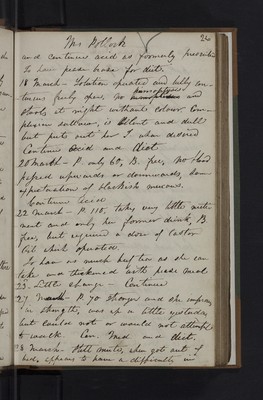 24
Mrs
and continue acid as formerly prescribed
To have pease brose for diet
18 March - Solution operated and belly continues
freely open, no and
stools at night without colour. Complexion
sallower, is silent and dull
but puts out her T when desired
Continue acid and diet.
20 March - P. only 60, B. free, no blood
passed upwards or downwards, some
expectoration of blackish mucous.
Continue acid
22 March - P. 118, takes very little nutriment
and only her former drink, B
free, but required a dose of Castor
Oil which operated.
To have as much beef tea as she can
take and thickened with pease meal
23. Little change - Continue
27 March P. 70 stronger and she improves
in strength, was up a little yesterday
but could not or would not attempt
to walk. Con. Med and diet.
March. Still mute, when got out of
bed, appears to have a difficulty in